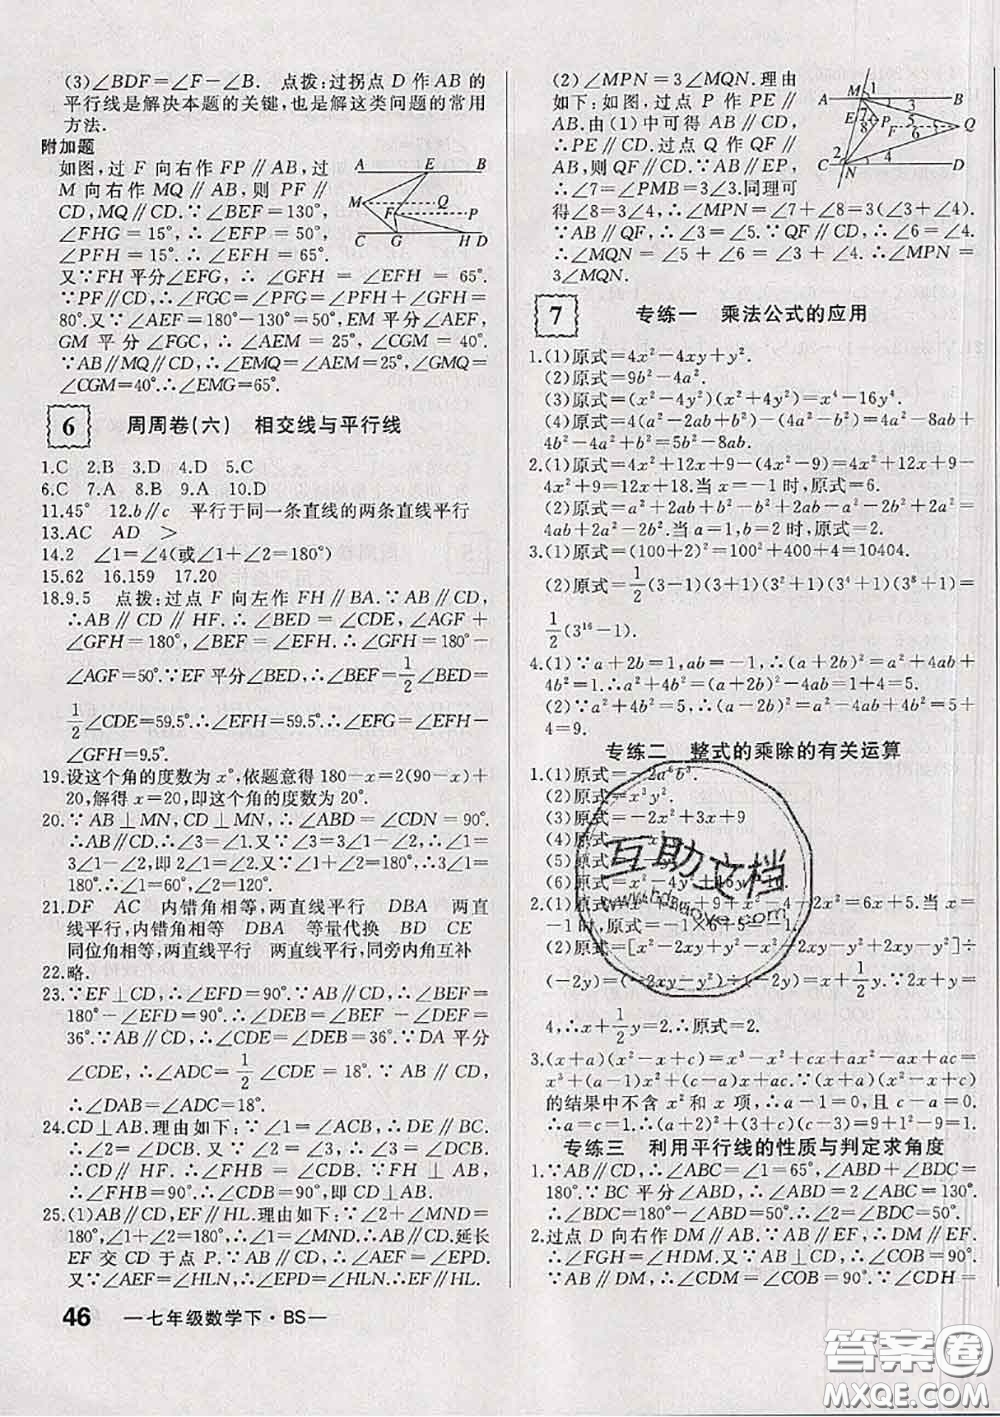 (3)∠BDF=∠F-∠B. 点拨:过拐点 D 作 AB 的
平行线是解决本题的关键,也是解这类问题的常用
方法.
附加题
如图,过 F 向右作 FP∥AB,过
M 向右作 MQ∥AB,则 PF∥
CD,MQ∥CD.∵∠BEF=130°,
∠FHG=15°,∴∠EFP=50°,
∠PFH=15°.∴∠EFH=65°.
又∵FH平分∠EFG,∴∠GFH=∠EFH=65°.
∵PF∥CD,∴∠FGC=∠PFG=∠PFH+∠GFH=
80°.又∵∠AEF=180°-130°=50°,EM 平分∠AEF,
GM 平分∠FGC,∴∠AEM=25°,∠CGM=40°.
∵AB∥MQ∥CD,∴∠EMQ=∠AEM=25°,∠GMQ=
∠CGM=40°.∴∠EMG=65°.
A E B
M Q
F P
C G H D
6 周周卷(六) 相交线与平行线
1.C 2.B 3.D 4.D 5.C
6.C 7.A 8.B 9.A 10.D
11.45° 12.b∥c 平行于同一条直线的两条直线平行
13.AC AD >
14.2 ∠1=∠4(或∠1+∠2=180°)
15.62 16.159 17.20
18.9.5 点拨:过点 F 向左作 FH∥BA.∵AB∥CD,
∴AB∥CD∥HF.∴∠BED=∠CDE,∠AGF+
∠GFH=180°,∠BEF=∠EFH.∴∠GFH=180°-
∠AGF=50°.∵EF平分∠BED,∴∠BEF=1/2∠BED=
1/2∠CDE=59.5°.∴∠EFH=59.5°.∴∠EFG=∠EFH-
∠GFH=9.5°.
19.设这个角的度数为 x°,依题意得180-x=2(90-x)+
20,解得 x=20,即这个角的度数为 20°.
20.∵AB⊥MN,CD⊥MN,∴∠ABD=∠CDN=90°.
∴AB∥CD.∴∠3=∠1.又∵∠3=∠2,∴∠1=∠2.∵
3∠1-∠2=130°,∴3∠1-∠1=130°.∴∠1=65°.
21.DF AC 内错角相等,两直线平行 DBA 两直
线平行,内错角相等 DBA 等量代换 BD CE
同位角相等,两直线平行 两直线平行,同旁内角互补
22.略.
23.∵EF⊥CD,∴∠EFD=90°.∵AB∥CD,∴∠BEF=
180°-∠EFD=90°.∴∠DEB=∠BEF-∠DEF=
36°.∵AB∥CD,∴∠CDE=∠DEB=36°.∵DA平分
∠CDE,∴∠ADC=1/2∠CDE=18°.∵AB∥CD,
∴∠DAB=∠ADC=18°.
24.CD⊥AB.理由如下:∵∠1=∠ACB,∴DE∥BC.
∴∠2=∠DCB.又∵∠2=∠3,∴∠3=∠DCB.
∴CD∥FH.∴∠BDC=∠FHB.又∵FH⊥AB,
∴∠FHB=90°.∴∠CDB=90°,即 CD⊥AB.
25.(1)AB∥CD,EF∥HL.理由如下:∵∠2+∠MND=
180°,∠1+∠2=180°,∴∠1=∠MND.∴AB∥CD.延长
EF 交 CD 于点 P.∵AB∥CD,∴∠AEF=∠EPD.
又∵∠AEF=∠HLN,∴∠EPD=∠HLN.∴EF∥HL.
46 —七年级数学下·BS—
(2)∠MPN=3∠MQN.理由
如下:如图,过点 P 作 PE∥
AB.由(1)中可得 AB∥CD,
∴PE∥CD.过点 Q 作 QF∥
AB,则 QF∥CD.∵AB∥EP,
∴∠7=∠PMB=3∠3.同理可
得∠8=3∠4,∴∠MPN=∠7+∠8=3(∠3+∠4).
∵AB∥QF,∴∠3=∠5.∵QF∥CD,∴∠6=∠4.
∴∠MQN=∠5+∠6=∠3+∠4.∴∠MPN=
3∠MQN.
M 1
A 3 B
E 7 P F 5 Q
8 6
C 4 D
N
7 专练一 乘法公式的应用
1.(1)原式=4x²-4xy+y².
(2)原式=9b²-4a².
(3)原式=(x²-4y²)(x²+4y²)=x⁴-16y⁴.
(4)原式=(a²-2ab+b²)-(4b²-a²)=4a²-8ab+
4b²-4a²+b²=5b²-8ab.
2.(1)原式=4x²+12x+9-(4x²-9)=4x²+12x+9-
4x²+9=12x+18.当 x=-1 时,原式=6.
(2)原式=a²+2ab+b²+a²-b²-2a²+4ab=2a²+
4ab+2ab-2a²=6ab.当 a=1,b=2 时,原式=12.
3.(1)原式=(100+2)²=100²+400+4=10404.
(2)原式=1/2(3-1)(3+1)(3²+1)(3⁴+1)(3⁸+1)=
1/2(3¹⁶-1).
4.(1)∵a+2b=1,ab=-1,∴(a+2b)²=a²+4ab+
4b²=1.∴a²+4b²=1-4ab=1+4=5.
(2)∵a²+4b²=5,∴(a-2b)²=a²-4ab+4b²=5+
4=9.
专练二 整式的乘除的有关运算
1.(1)原式=-2a⁶b³.
(2)原式=x³y².
(3)原式=-2x²+3x+9
(4)原式
(5)原式
(6)原式=x²-4y²+
2.(1)原式=2x²=6x+5.当 x=
-1时,原式=-1×6+5=-1.
(2)原式=[x²-2xy+y²-x²-2xy-y²+2xy-y²]÷
(-2y)=(-2xy-y²)÷(-2y)=x+1/2y.∵2x+y=
4,∴x+1/2y=2.∴原式=2.
3.(x+a)(x²-x+c)=x³-x²+cx+ax²-ax+ac=
x³+(a-1)x²+(c-a)x+ac.∵(x+a)(x²-x+c)
的结果中不含 x² 和 x 项,∴a-1=0,且 c-a=0.
∴a=1,c=1.∴(9a-1)-(c-3)=9+1²-9=1.
专练三 利用平行线的性质与判定求角度
1.∵AB∥CD,∴∠ABC=∠1=65°,∠ABD+∠BDC=
180°.∵BC 平分∠ABD,∴∠ABD=2∠ABC=130°.
∴∠BDC=180°-∠ABD=50°.∴∠2=∠BDC=50°.
2.过点 D 向右作 DM∥AB.∵AB∥EF,∴DM∥EF.
∴∠FGH=∠HDM.又∵CO⊥AB,∴∠COB=90°.
∵AB∥DM,∴∠CDM=∠COB=90°.∵∠CDH=
互助文档
www.hdzuoye.com
答案圈
MXQE.COM